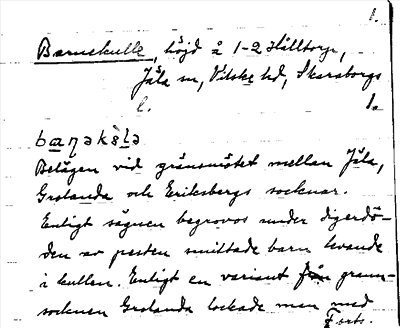 1.
Barnekulle, höjd å 1-2 Hålltorp,
Jäla sn, Vilske hd, Skaraborgs
l. 1.
baṇəkèlə
Belägen vid gränsmötet mellan Jäla,
Grolanda och Eriksbergs socknar.
Enligt sägnen begrovos under digerdö-
den av pesten smittade barn levande
i kullen. Enligt en variant från grann-
socknen Grolanda lockade man med
Forts.